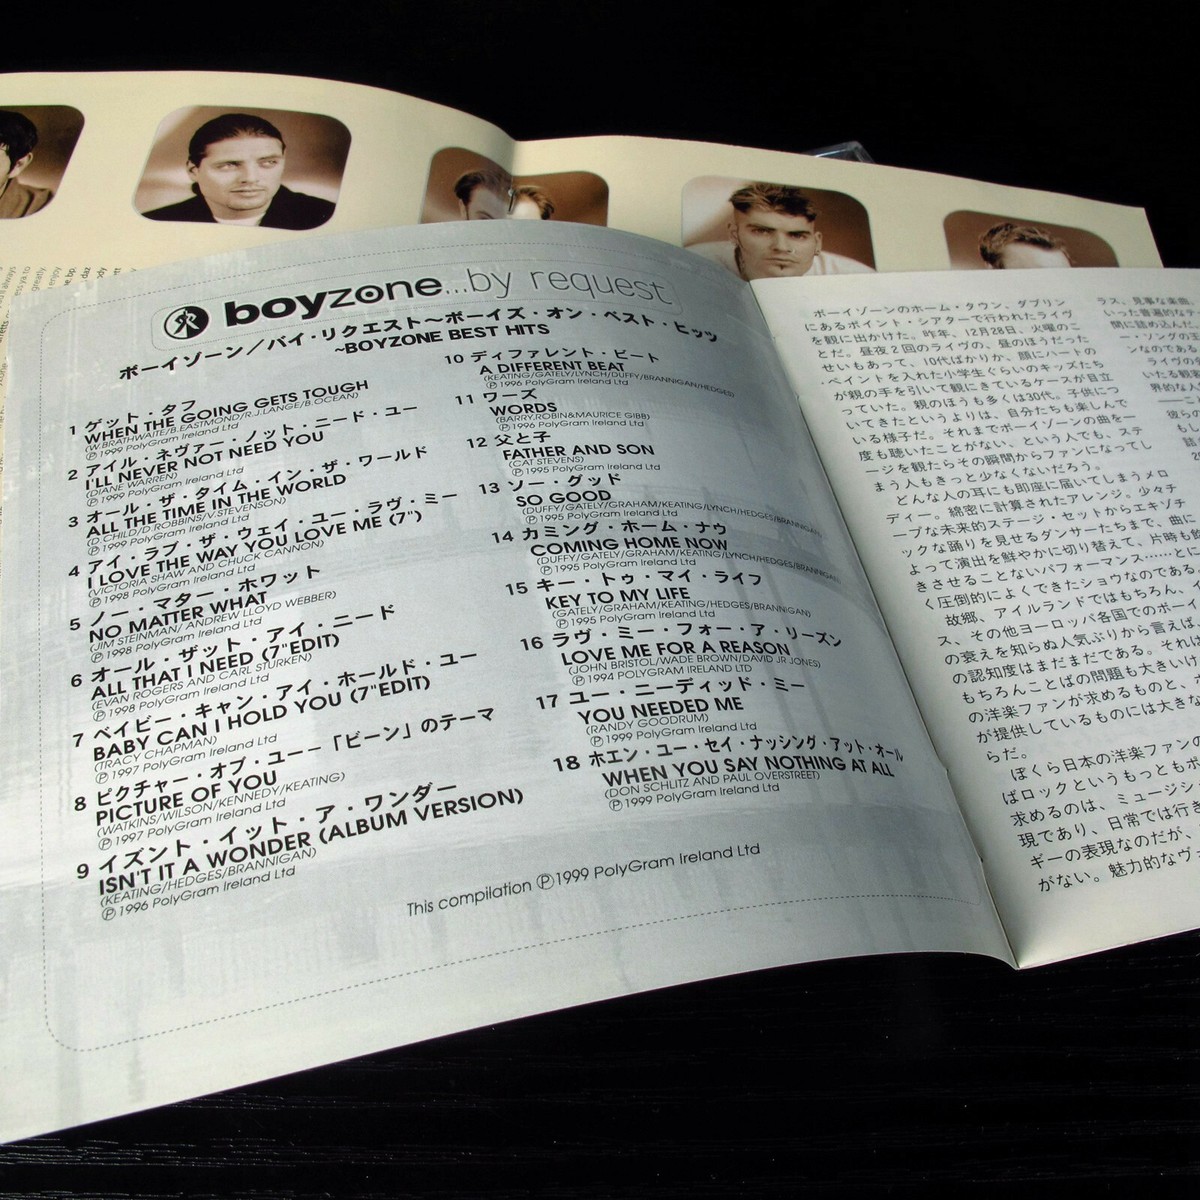 boyzone...by request
ボーイゾーン／バイ・リクエスト〜ボーイズ・オン・ベスト・ヒッツ
~BOYZONE BEST HITS
1 ゲット・タフ
WHEN THE GOING GETS TOUGH
(W.BRATHWAITE/B.EASTMOND/R.J.LANGE/B.OCEAN)
Ⓟ1999 PolyGram Ireland Ltd
2 アイル・ネヴァー・ノット・ニード・ユー
I'LL NEVER NOT NEED YOU
(DIANE WARREN)
Ⓟ1999 PolyGram Ireland Ltd
3 オール・ザ・タイム・イン・ザ・ワールド
ALL THE TIME IN THE WORLD
(D.CHILD/D.ROBBINS/V.STEVENSON)
Ⓟ1999 PolyGram Ireland Ltd
4 アイ・ラブ・ザ・ウェイ・ユー・ラヴ・ミー
I LOVE THE WAY YOU LOVE ME (7")
(VICTORIA SHAW AND CHUCK CANNON)
Ⓟ1998 PolyGram Ireland Ltd
5 ノー・マター・ホワット
NO MATTER WHAT
(JIM STEINMAN/ ANDREW LLOYD WEBBER)
Ⓟ1998 PolyGram Ireland Ltd
6 オール・ザット・アイ・ニード
ALL THAT I NEED (7"EDIT)
(EVAN ROGERS AND CARL STURKEN)
Ⓟ1998 PolyGram Ireland Ltd
7 ベイビー・キャン・アイ・ホールド・ユー
BABY CAN I HOLD YOU (7"EDIT)
(TRACY CHAPMAN)
Ⓟ1997 PolyGram Ireland Ltd
8 ピクチャー・オブ・ユー－「ビーン」のテーマ
PICTURE OF YOU
(WATKINS/WILSON/KENNEDY/KEATING)
Ⓟ1997 PolyGram Ireland Ltd
9 イズント・イット・ア・ワンダー
ISN'T IT A WONDER (ALBUM VERSION)
(KEATING/HEDGES/BRANNIGAN)
Ⓟ1996 PolyGram Ireland Ltd
10 ディファレント・ビート
A DIFFERENT BEAT
(KEATING/GATELY/LYNCH/DUFFY/BRANNIGAN/HEDGES)
Ⓟ1996 PolyGram Ireland Ltd
11 ワーズ
WORDS
(BARRY,ROBIN&MAURICE GIBB)
Ⓟ1996 PolyGram Ireland Ltd
12 父と子
FATHER AND SON
(CAT STEVENS)
Ⓟ1995 PolyGram Ireland Ltd
13 ソー・グッド
SO GOOD
(DUFFY/GATELY/GRAHAM/KEATING/LYNCH/HEDGES/BRANNIGAN)
Ⓟ1995 PolyGram Ireland Ltd
14 カミング・ホーム・ナウ
COMING HOME NOW
(DUFFY/GATELY/GRAHAM/KEATING/LYNCH/HEDGES/BRANNIGAN)
Ⓟ1995 PolyGram Ireland Ltd
15 キー・トゥ・マイ・ライフ
KEY TO MY LIFE
(GATELY/GRAHAM/KEATING/HEDGES/BRANNIGAN)
Ⓟ1995 PolyGram Ireland Ltd
16 ラヴ・ミー・フォー・ア・リーズン
LOVE ME FOR A REASON
(JOHN BRISTOL/WADE BROWN/DAVID JR JONES)
Ⓟ1994 POLYGRAM IRELAND LTD
17 ユー・ニーディッド・ミー
YOU NEEDED ME
(RANDY GOODRUM)
Ⓟ1999 PolyGram Ireland Ltd
18 ホエン・ユー・セイ・ナッシング・アット・オール
WHEN YOU SAY NOTHING AT ALL
(DON SCHLITZ AND PAUL OVERSTREET)
Ⓟ1999 PolyGram Ireland Ltd
This compilation Ⓟ1999 PolyGram Ireland Ltd
ボーイゾーンのホーム・タウン、ダブリン
にあるポイント・シアターで行われたライヴ
を観に出かけた。昨年、12月28日、火曜のこ
とだ。昼夜2回のライヴの、昼のほうだった
せいもあって、10代ばかりか、顔にハートの
ペイントを入れた小学生ぐらいのキッズたち
が親の手を引いて観にきているケースが目立
っていた。親のほうも多くは30代。子供につ
いてきたというよりは、自分たちも楽しんで
いる様子だ。それまでボーイゾーンの曲を一
度も聴いたことがない、という人でも、ステ
ージを観たらその瞬間からファンになってし
まう人もきっと少なくないだろう。
どんな人の耳にも即座に届いてしまうメロ
ディー。綿密に計算されたアレンジ。少々チ
ープな未来的ステージ・セットからエキゾチ
ックな踊りを見せるダンサーたちまで、曲に
よって演出を鮮やかに切り替えて、片時も飽
きさせることないパフォーマンス……とに
く圧倒的によくできたショウなのである。
故郷、アイルランドではもちろん、イ
ス、その他ヨーロッパ各国でのボーイ
の衰えを知らぬ人気ぶりから言えば、
の認知度はまだまだである。それは
もちろんことばの問題も大きいけ
の洋楽ファンが求めるものと、ボ
が提供しているものには大きな
らだ。
ぼくら日本の洋楽ファンの
ばロックというもっともポ
求めるのは、ミュージシ
現であり、日常では行き
ギーの表現なのだが、
がない。魅力的なヴ
ラス、見事な楽曲、
いった普遍的なテ
間に詰め込んだ
ー・ソングの王
ンなのである
ライヴの
いたる観客
界的な人